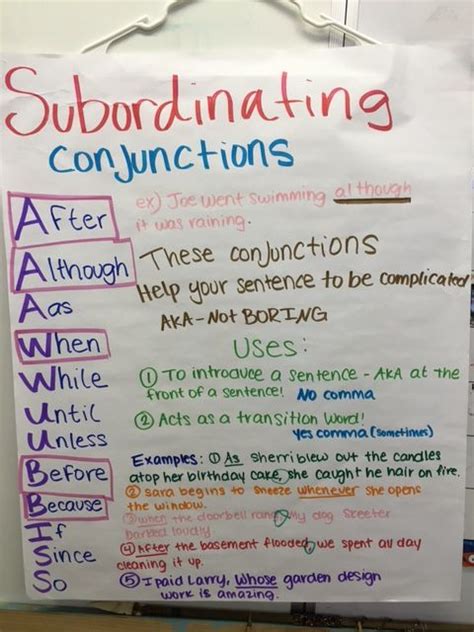 Subordinating
conjunctions
ex) Joe went swimming although
it was raining.
After
Although
Aas
When
While
Until
Unless
Before
Because
If
Since
So
These conjunctions
Help your sentence to be complicated
AKA-Not BORING
Uses:
① To introduce a sentence - AKA at the
front of a sentence! No comma
② Acts as a transition word!
Yes comma (sometimes)
Examples: ① As sherri blew out the candles
atop her birthday cake, she caught he hair on fire.
② sara begins to sneeze whenever she opens
the window.
③ when the doorbell rang, my dog Skeeter
barked loudly.
④ After the basement flooded, we spent all day
cleaning it up.
⑤ I paid Larry, whose garden design
work is amazing.